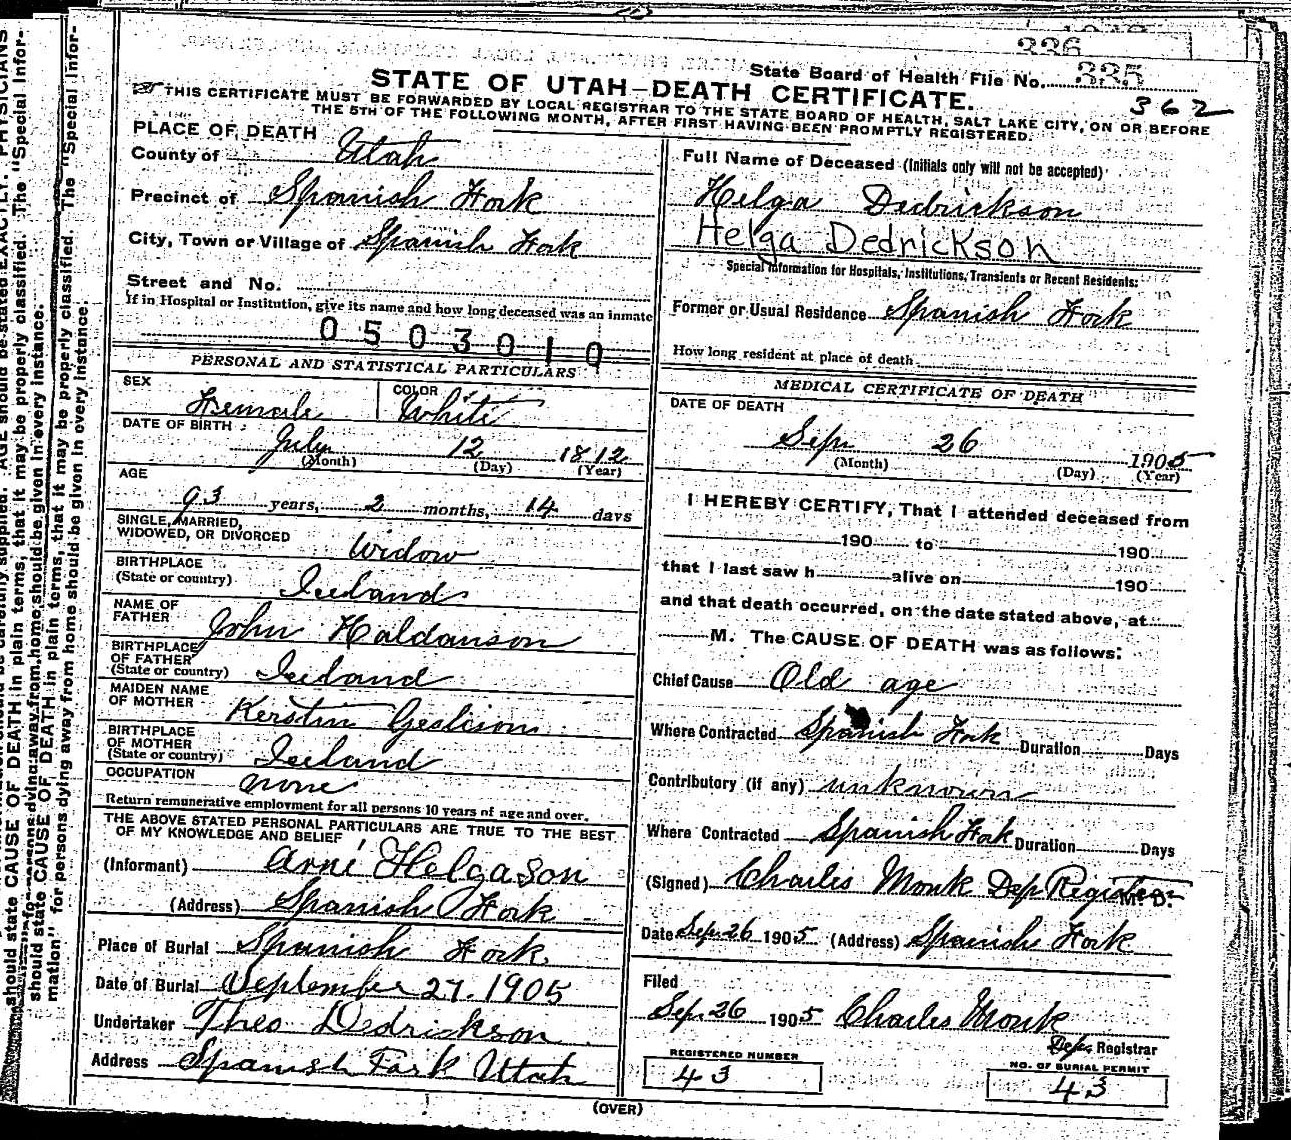 336
State Board of Health File No. 335
362
STATE OF UTAH—DEATH CERTIFICATE.
THIS CERTIFICATE MUST BE FORWARDED BY LOCAL REGISTRAR TO THE STATE BOARD OF HEALTH, SALT LAKE CITY, ON OR BEFORE
THE 5TH OF THE FOLLOWING MONTH, AFTER FIRST HAVING BEEN PROMPTLY REGISTERED.
PLACE OF DEATH
County of Utah
Precinct of Spanish Fork
City, Town or Village of Spanish Fork
Street and No.
If in Hospital or Institution, give its name and how long deceased was an inmate
0503010
PERSONAL AND STATISTICAL PARTICULARS
SEX Female COLOR White
DATE OF BIRTH July 12 1812
(Month) (Day) (Year)
AGE
93 years, 2 months, 14 days
SINGLE, MARRIED,
WIDOWED, OR DIVORCED Widow
BIRTHPLACE
(State or country) Iceland
NAME OF
FATHER John Haldanson
BIRTHPLACE
OF FATHER
(State or country) Iceland
MAIDEN NAME
OF MOTHER Kerstin
BIRTHPLACE
OF MOTHER
(State or country) Iceland
OCCUPATION none
Return remunerative employment for all persons 10 years of age and over.
THE ABOVE STATED PERSONAL PARTICULARS ARE TRUE TO THE BEST
OF MY KNOWLEDGE AND BELIEF
(Informant) Arné Helgason
(Address) Spanish Fork
Place of Burial Spanish Fork.
Date of Burial September 27. 1905
Undertaker Theo Dedrickson
Address Spanish Fork Utah
Full Name of Deceased (Initials only will not be accepted)
Helga Dedrickson
Helga Dedrickson
Special Information for Hospitals, Institutions, Transients or Recent Residents:
Former or Usual Residence Spanish Fork
How long resident at place of death
MEDICAL CERTIFICATE OF DEATH
DATE OF DEATH
Sep. 26 1905
(Month) (Day) (Year)
I HEREBY CERTIFY, That I attended deceased from
190 to 190
that I last saw h alive on 190
and that death occurred, on the date stated above, at
M. The CAUSE OF DEATH was as follows:
Chief Cause Old age
Where Contracted Spanish Fork Duration Days
Contributory (if any) unknown
Where Contracted Spanish Fork Duration Days
(Signed) Charles Monk Dep Registrar M. D.
Date Sep. 26 1905 (Address) Spanish Fork
Filed
Sep. 26 1905 Charles Monk
Dep. Registrar
REGISTERED NUMBER
43
NO. OF BURIAL PERMIT
43
(OVER)
AGE should be stated EXACTLY. PHYSICIANS
should state CAUSE OF DEATH in plain terms, that it may be properly classified. The "Special Infor-
should be given in every instance.
should state CAUSE OF DEATH in plain terms, that it may be properly classified. The "Special Infor-
mation" for persons dying away from home should be given in every instance